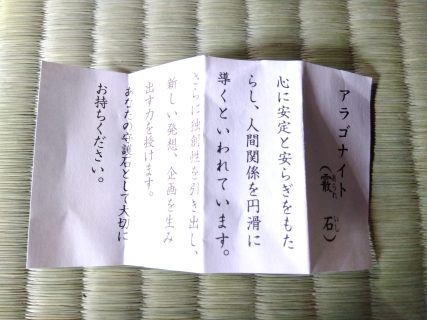 アラゴナイト
(霰石)
あられ いし
心に安定と安らぎをもた
らし、人間関係を円滑に
導くといわれています。
さらに独創性を引き出し、
新しい発想、企画を生み
出す力を授けます。
あなたの守護石として大切に
お持ちください。